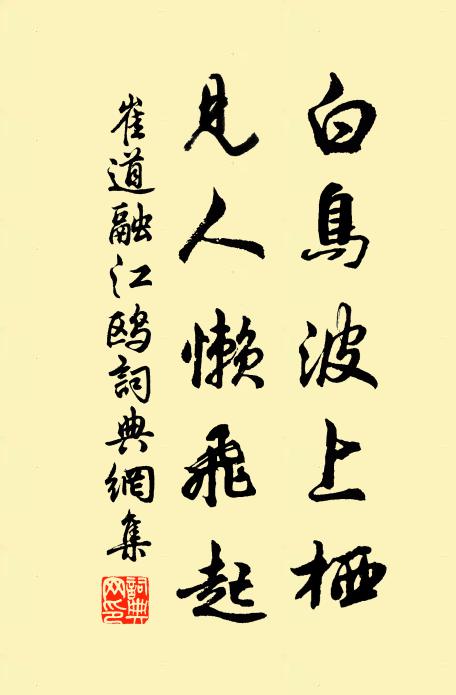 白鳥波上栖
見人懶飛起
崔道融江鷗詞典網集
詞典網印